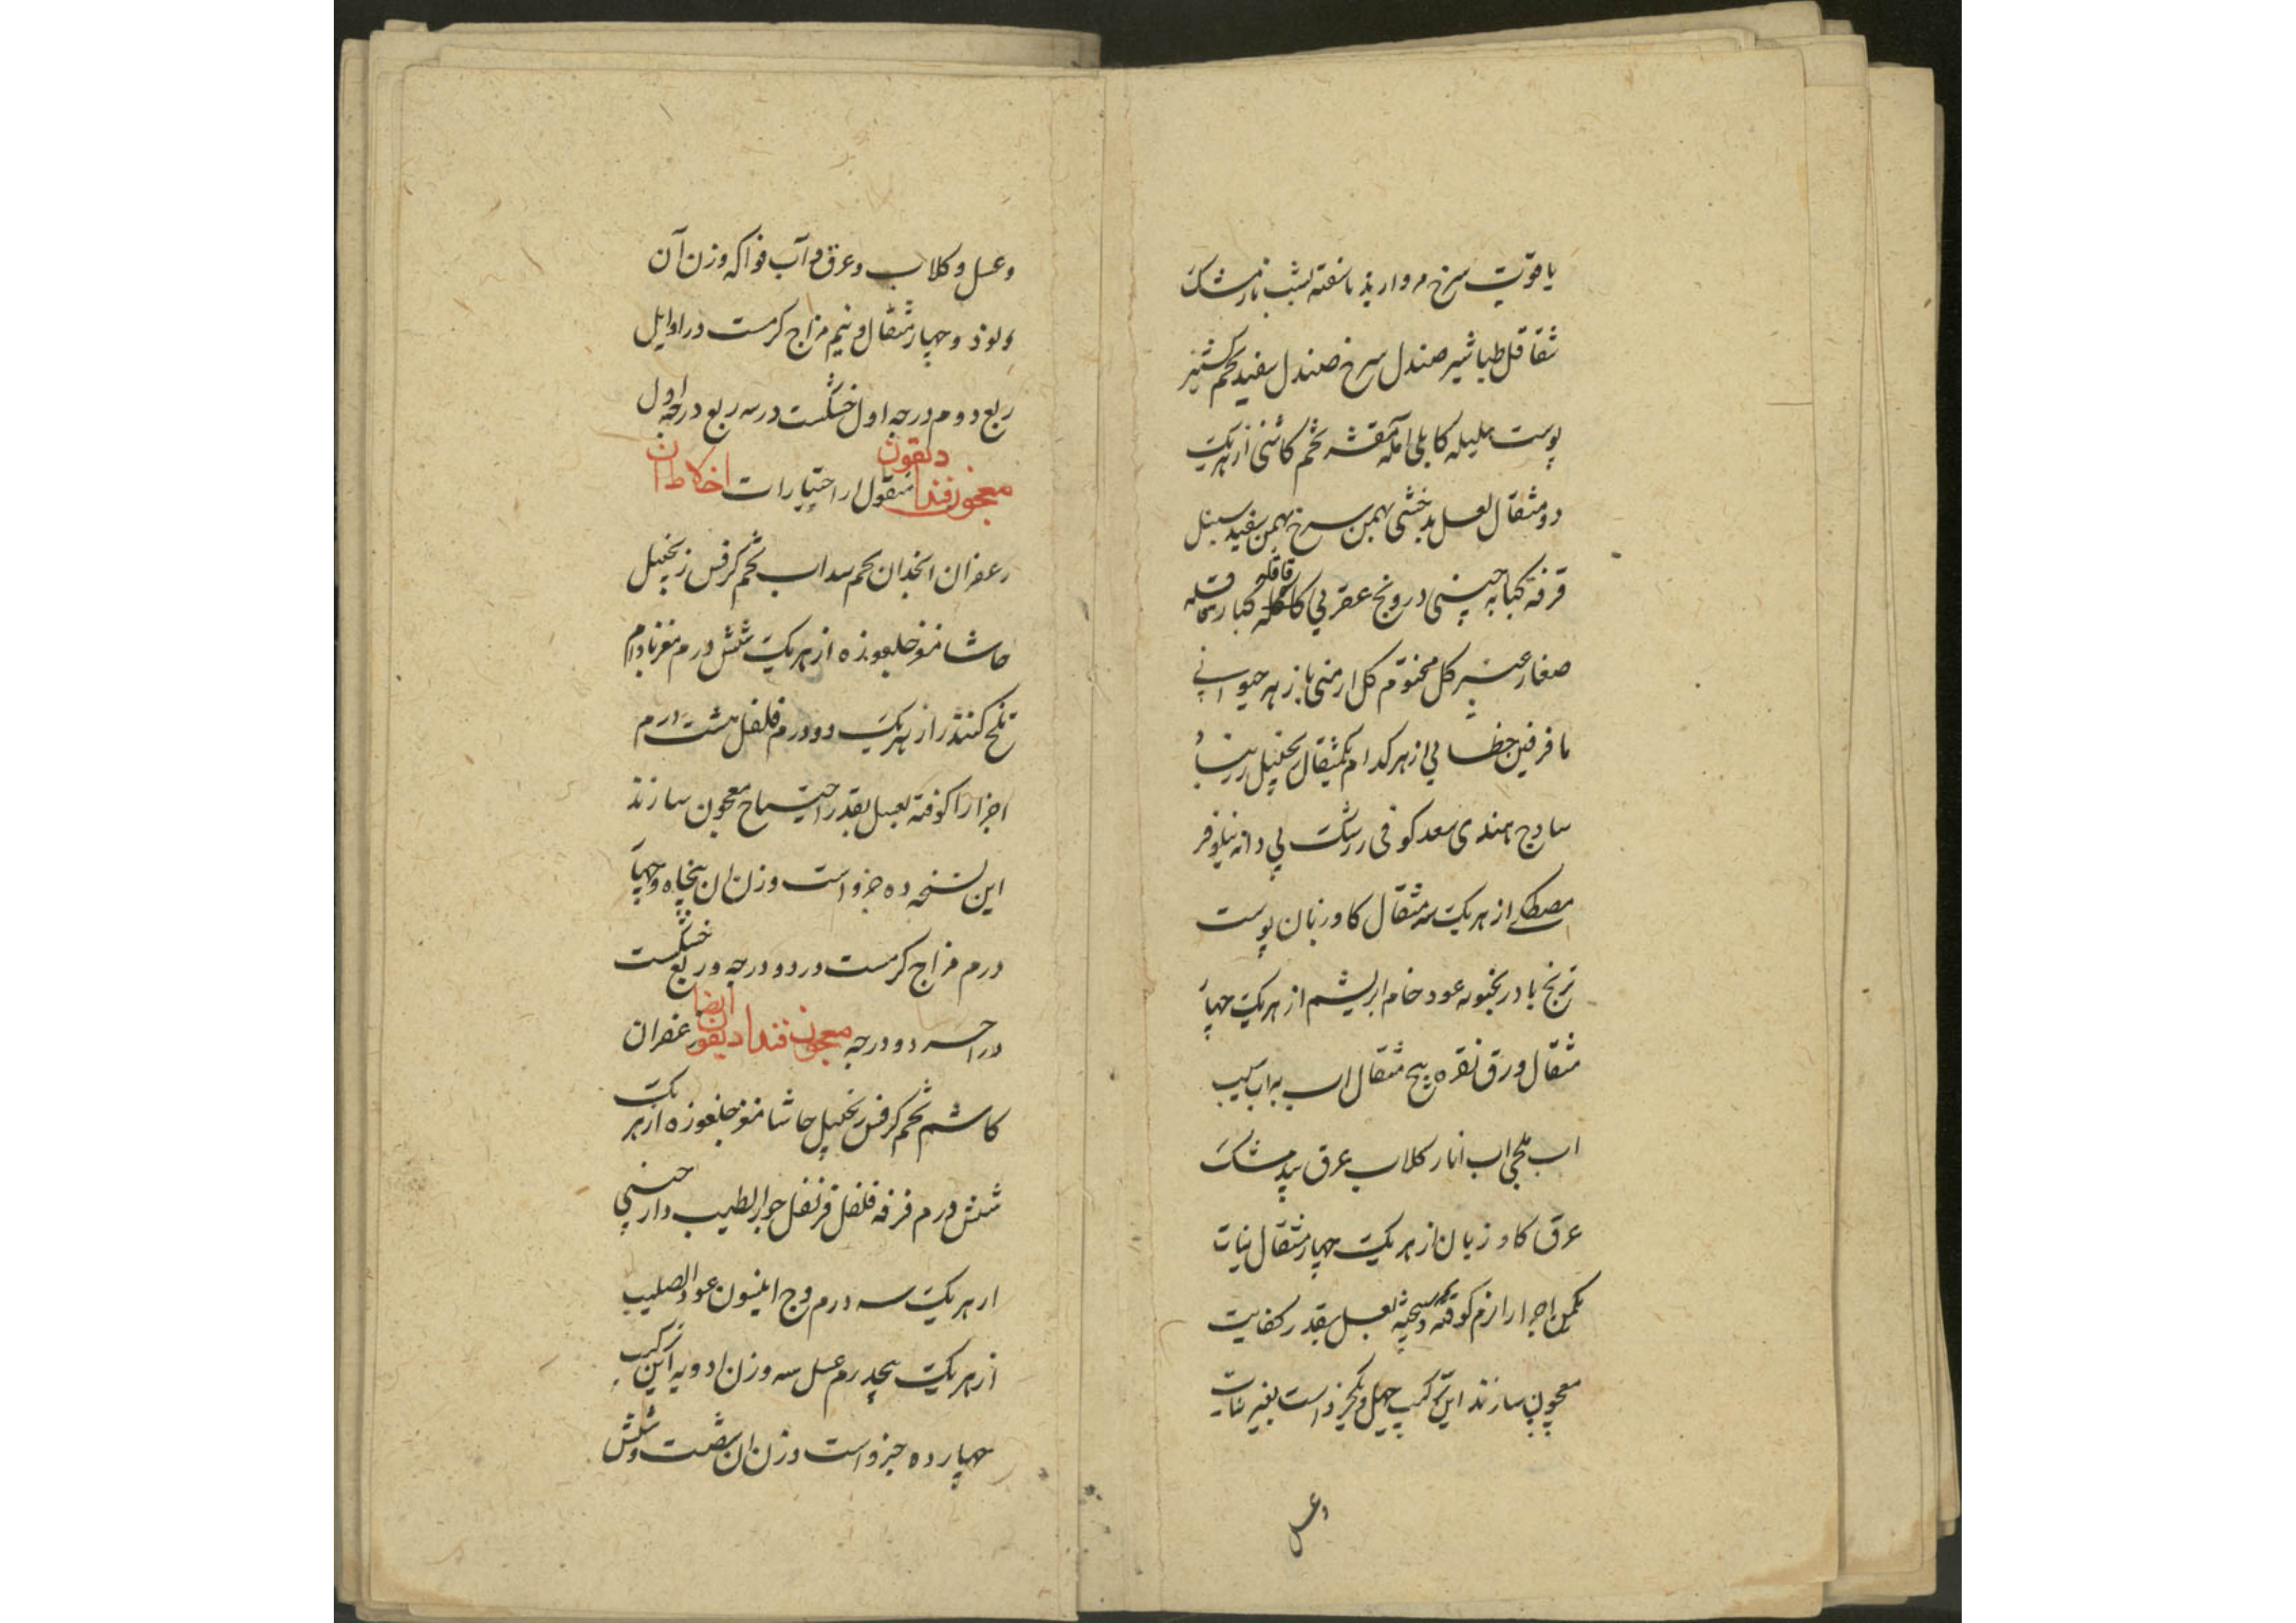 یاقوت سرخ مروارید ناسفته یشب نارمشک
شقاقل طباشیر صندل سرخ صندل سفید تخم کشنیز
پوست هلیله کابلی آمله مقشر تخم کاسنی از هریک
دو مثقال لعل بدخشی بهمن سرخ بهمن سفید سنبل
قرفه کبابه چینی درونج عقربی قاقله کبار قاقله
صغار عنبر کل مختوم کل ارمنی پازهر حیوانی
مافرفین خطایی از هر کدام یکمثقال زنجبیل زرنباد
سادج هندی سعد کوفی زرشک بی دانه نیلوفر
مصطکی از هریک سه مثقال کاوزبان پوست
ترنج بادرنجبویه عود خام ابریشم از هریک چهار
مثقال ورق نقره پنج مثقال اب به اب سیب
اب اب انار کلاب عرق بیدمشک
عرق کاوزبان از هریک چهار مثقال نبات
یکمن اجزا را نرم کوفته وبیخته بعسل بقدر کفایت
معجون سازند این ترکیب چهل ویکجزو است بغیر نبات
وعسل
وعسل وکلاب وعرق و آب فواکه وزن آن
ونود وچهار مثقال ونیم مزاج کرمست در اوایل
ربع دوم درجه اول خشکست در سه ربع درجه اول
معجون فنداديقون منقول از اختیارات اخلاط ان
زعفران انجدان تخم سداب تخم کرفس زنجبیل
حاشا مغز جلغوزه از هریک شش درم مغز بادام
تلخ کندر از هریک دو درم فلفل هشت درم
اجزا را کوفته بعسل بقدر احتیاج معجون سازند
این نسخه ده جزو است وزن ان پنجاه وچهار
درم مزاج کرمست در دو درجه وربع خشکست
در اخر دو درجه معجون فنداديقون ایضا زعفران
کاشم تخم کرفس زنجبیل حاشا مغز جلغوزه از هریک
شش درم قرفه فلفل قرنفل جوز الطیب دارچینی
از هریک سه درم وج انیسون عود الصلیب
از هریک پنجدرم عسل سه وزن ادویه این ترکیب
چهارده جزو است وزن ان شصت وشش